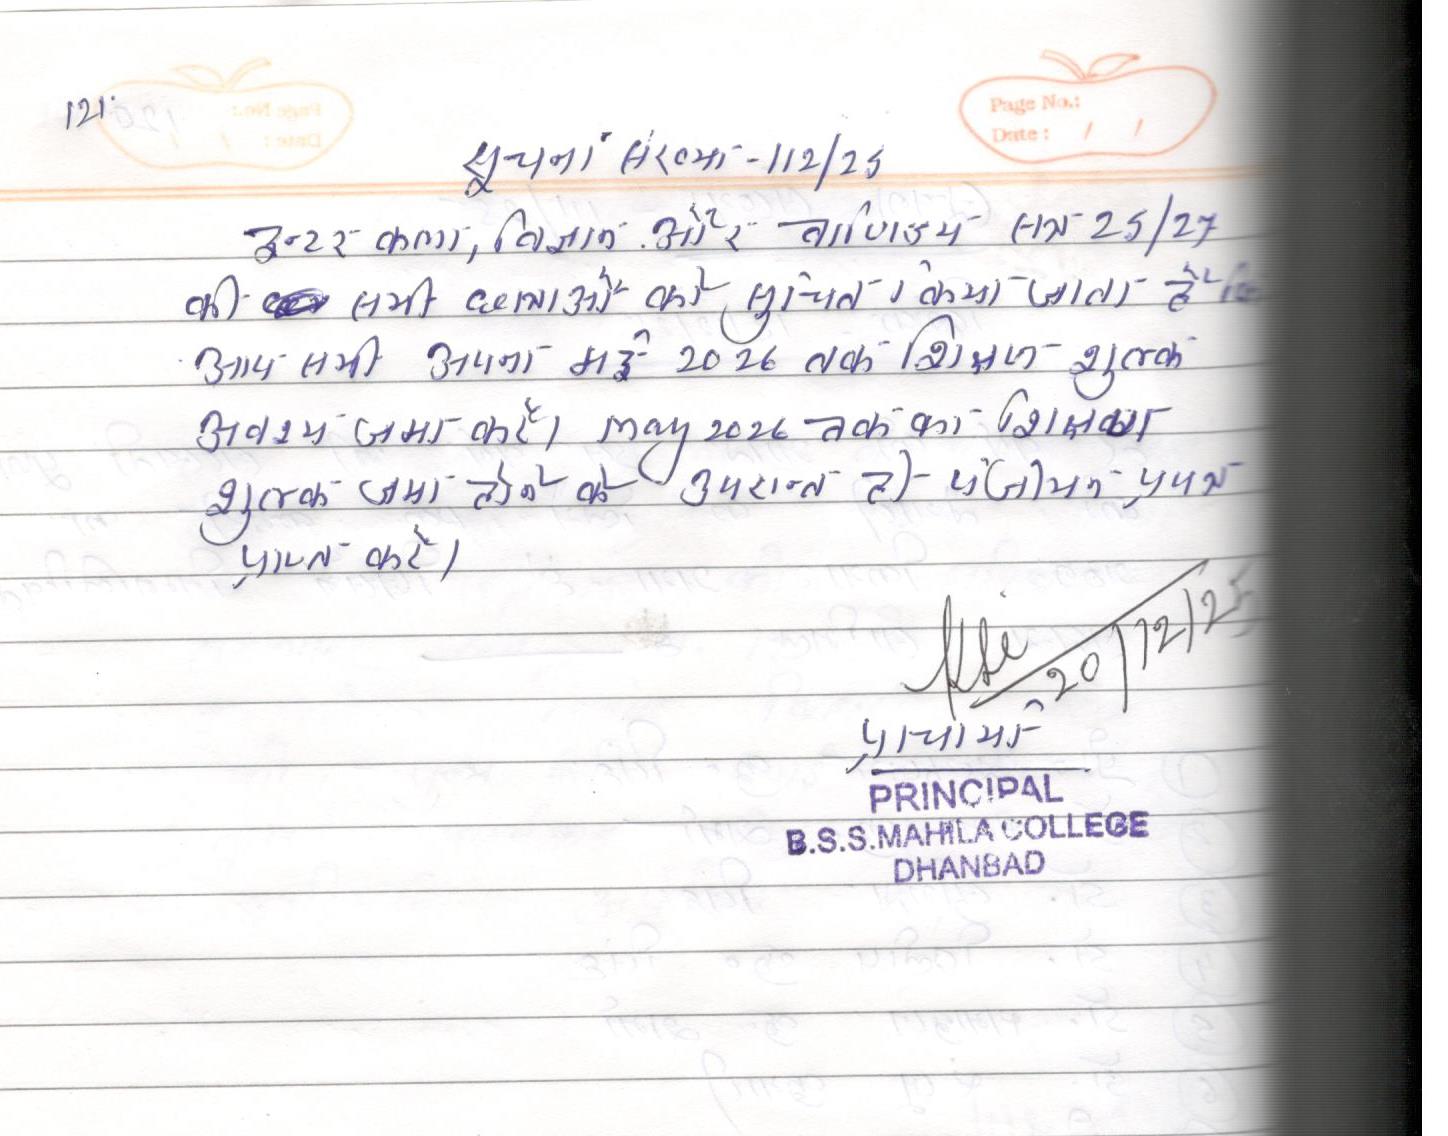 121.
Page No.:
Date : / /
सुचना संख्या - 112/25
इन्टर कला, विज्ञान और वाणिज्य सत्र 25/27
की सभी छात्राओं को सुचित किया जाता है कि
आप सभी अपना मई 2026 तक शिक्षण शुल्क
अवश्य जमा करें। May 2026 तक का शिक्षण
शुल्क जमा होने के उपरान्त ही पंजीयन प्रपत्र
प्राप्त करें।
20/12/25
प्राचार्या
PRINCIPAL
B.S.S.MAHILA COLLEGE
DHANBAD